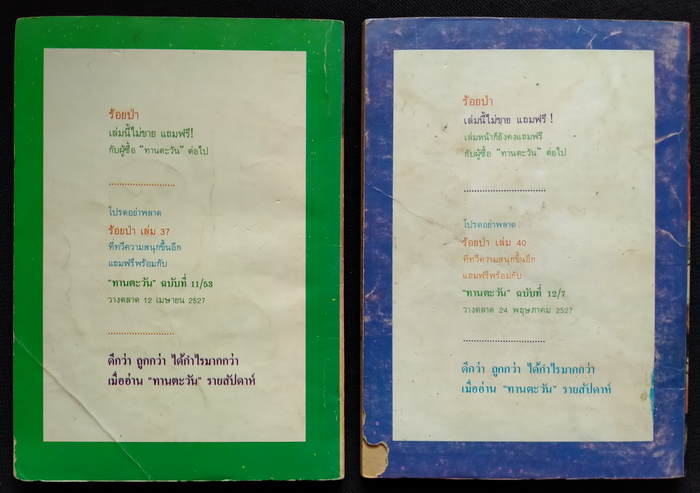 ร้อยป่า
เล่มนี้ไม่ขาย แถมฟรี!
กับผู้ซื้อ "ทานตะวัน" ต่อไป
โปรดอย่าพลาด
ร้อยป่า เล่ม 37
ที่ทวีความสนุกขึ้นอีก
แถมฟรีพร้อมกับ
"ทานตะวัน" ฉบับที่ 11/53
วางตลาด 12 เมษายน 2527
ดีกว่า ถูกกว่า ได้กำไรมากกว่า
เมื่ออ่าน "ทานตะวัน" รายสัปดาห์
ร้อยป่า
เล่มนี้ไม่ขาย แถมฟรี !
เล่มหน้าก็ยังคงแถมฟรี
กับผู้ซื้อ "ทานตะวัน" ต่อไป
โปรดอย่าพลาด
ร้อยป่า เล่ม 40
ที่ทวีความสนุกขึ้นอีก
แถมฟรีพร้อมกับ
"ทานตะวัน" ฉบับที่ 12/7
วางตลาด 24 พฤษภาคม 2527
ดีกว่า ถูกกว่า ได้กำไรมากกว่า
เมื่ออ่าน "ทานตะวัน" รายสัปดาห์